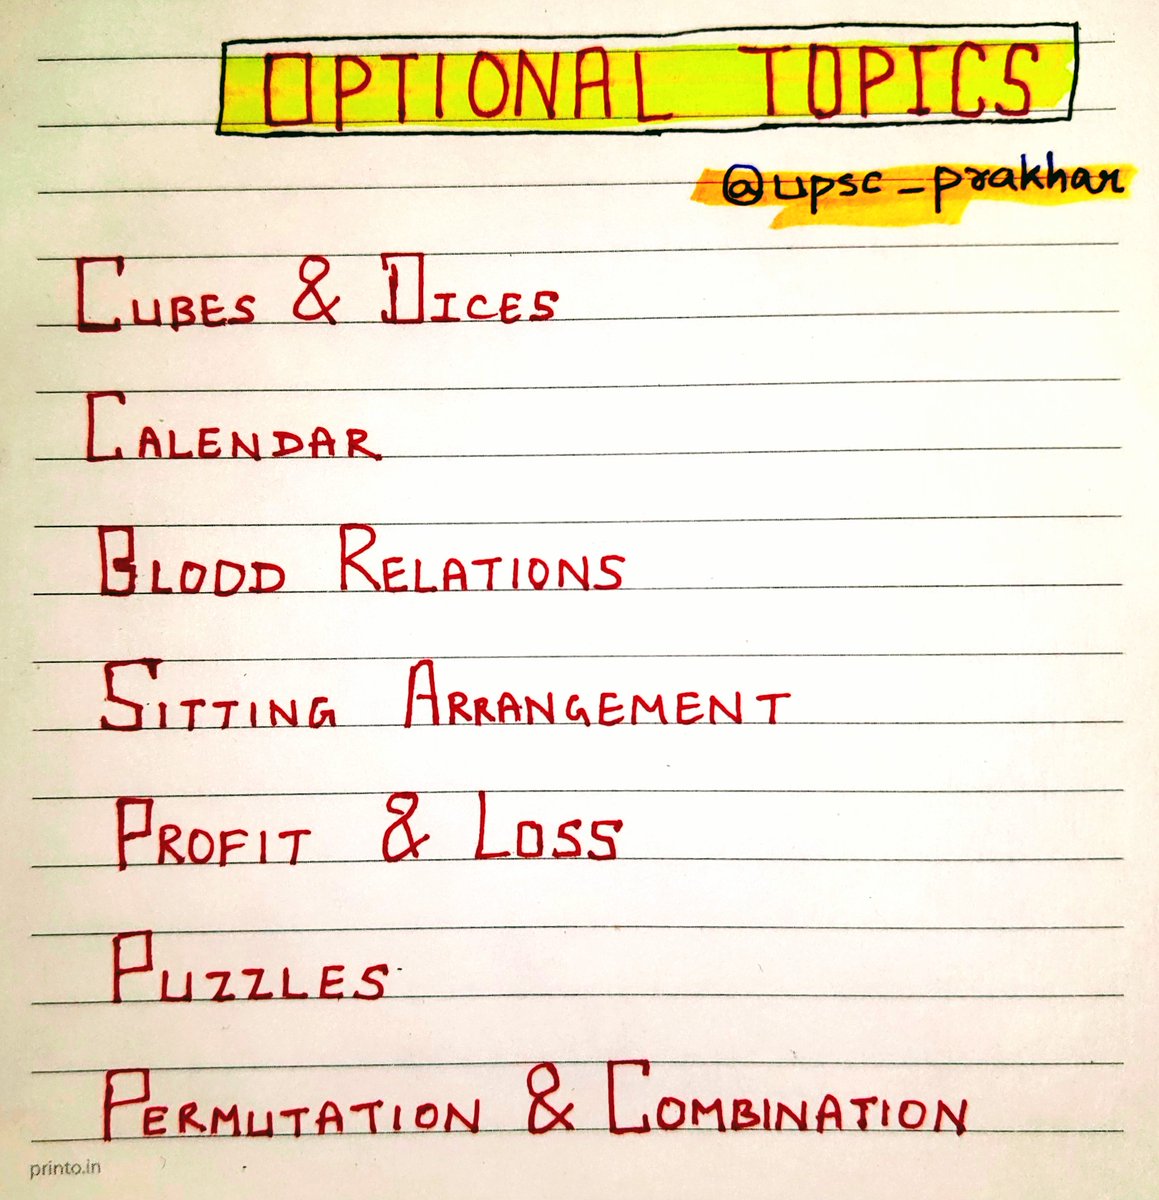 OPTIONAL TOPICS
@upsc_prakhar
CUBES & DICES
CALENDAR
BLOOD RELATIONS
SITTING ARRANGEMENT
PROFIT & LOSS
PUZZLES
PERMUTATION & COMBINATION
printo.in